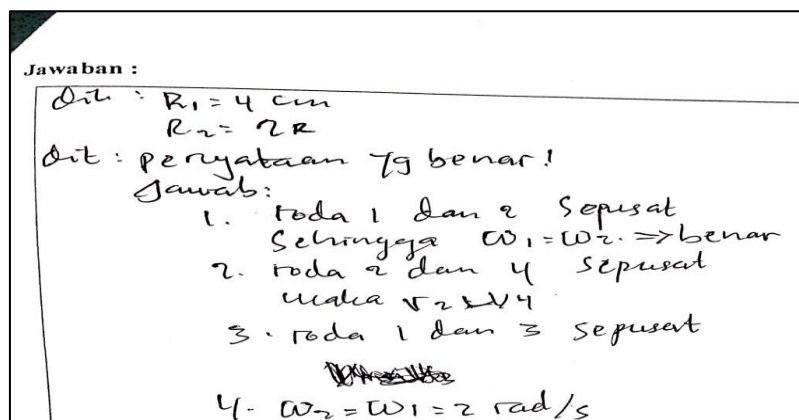 Jawaban :
Dik : R₁ = 4 cm
R₂ = 2R
Dit : pernyataan yg benar!
Jawab:
1. roda 1 dan 2 Sepusat
Sehingga ω₁ = ω₂. => benar
2. roda 2 dan 4 sepusat
maka v₂ = v4
3. roda 1 dan 3 sepusat
4. ω₂ = ω₁ = 2 rad/s